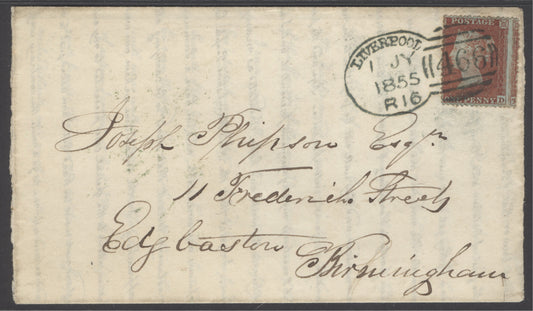 POSTAGE
LIVERPOOL
1 JY
1855
R16
466
Joseph Phipson Esqr
11 Frederick Street
Edgbaston
Birmingham